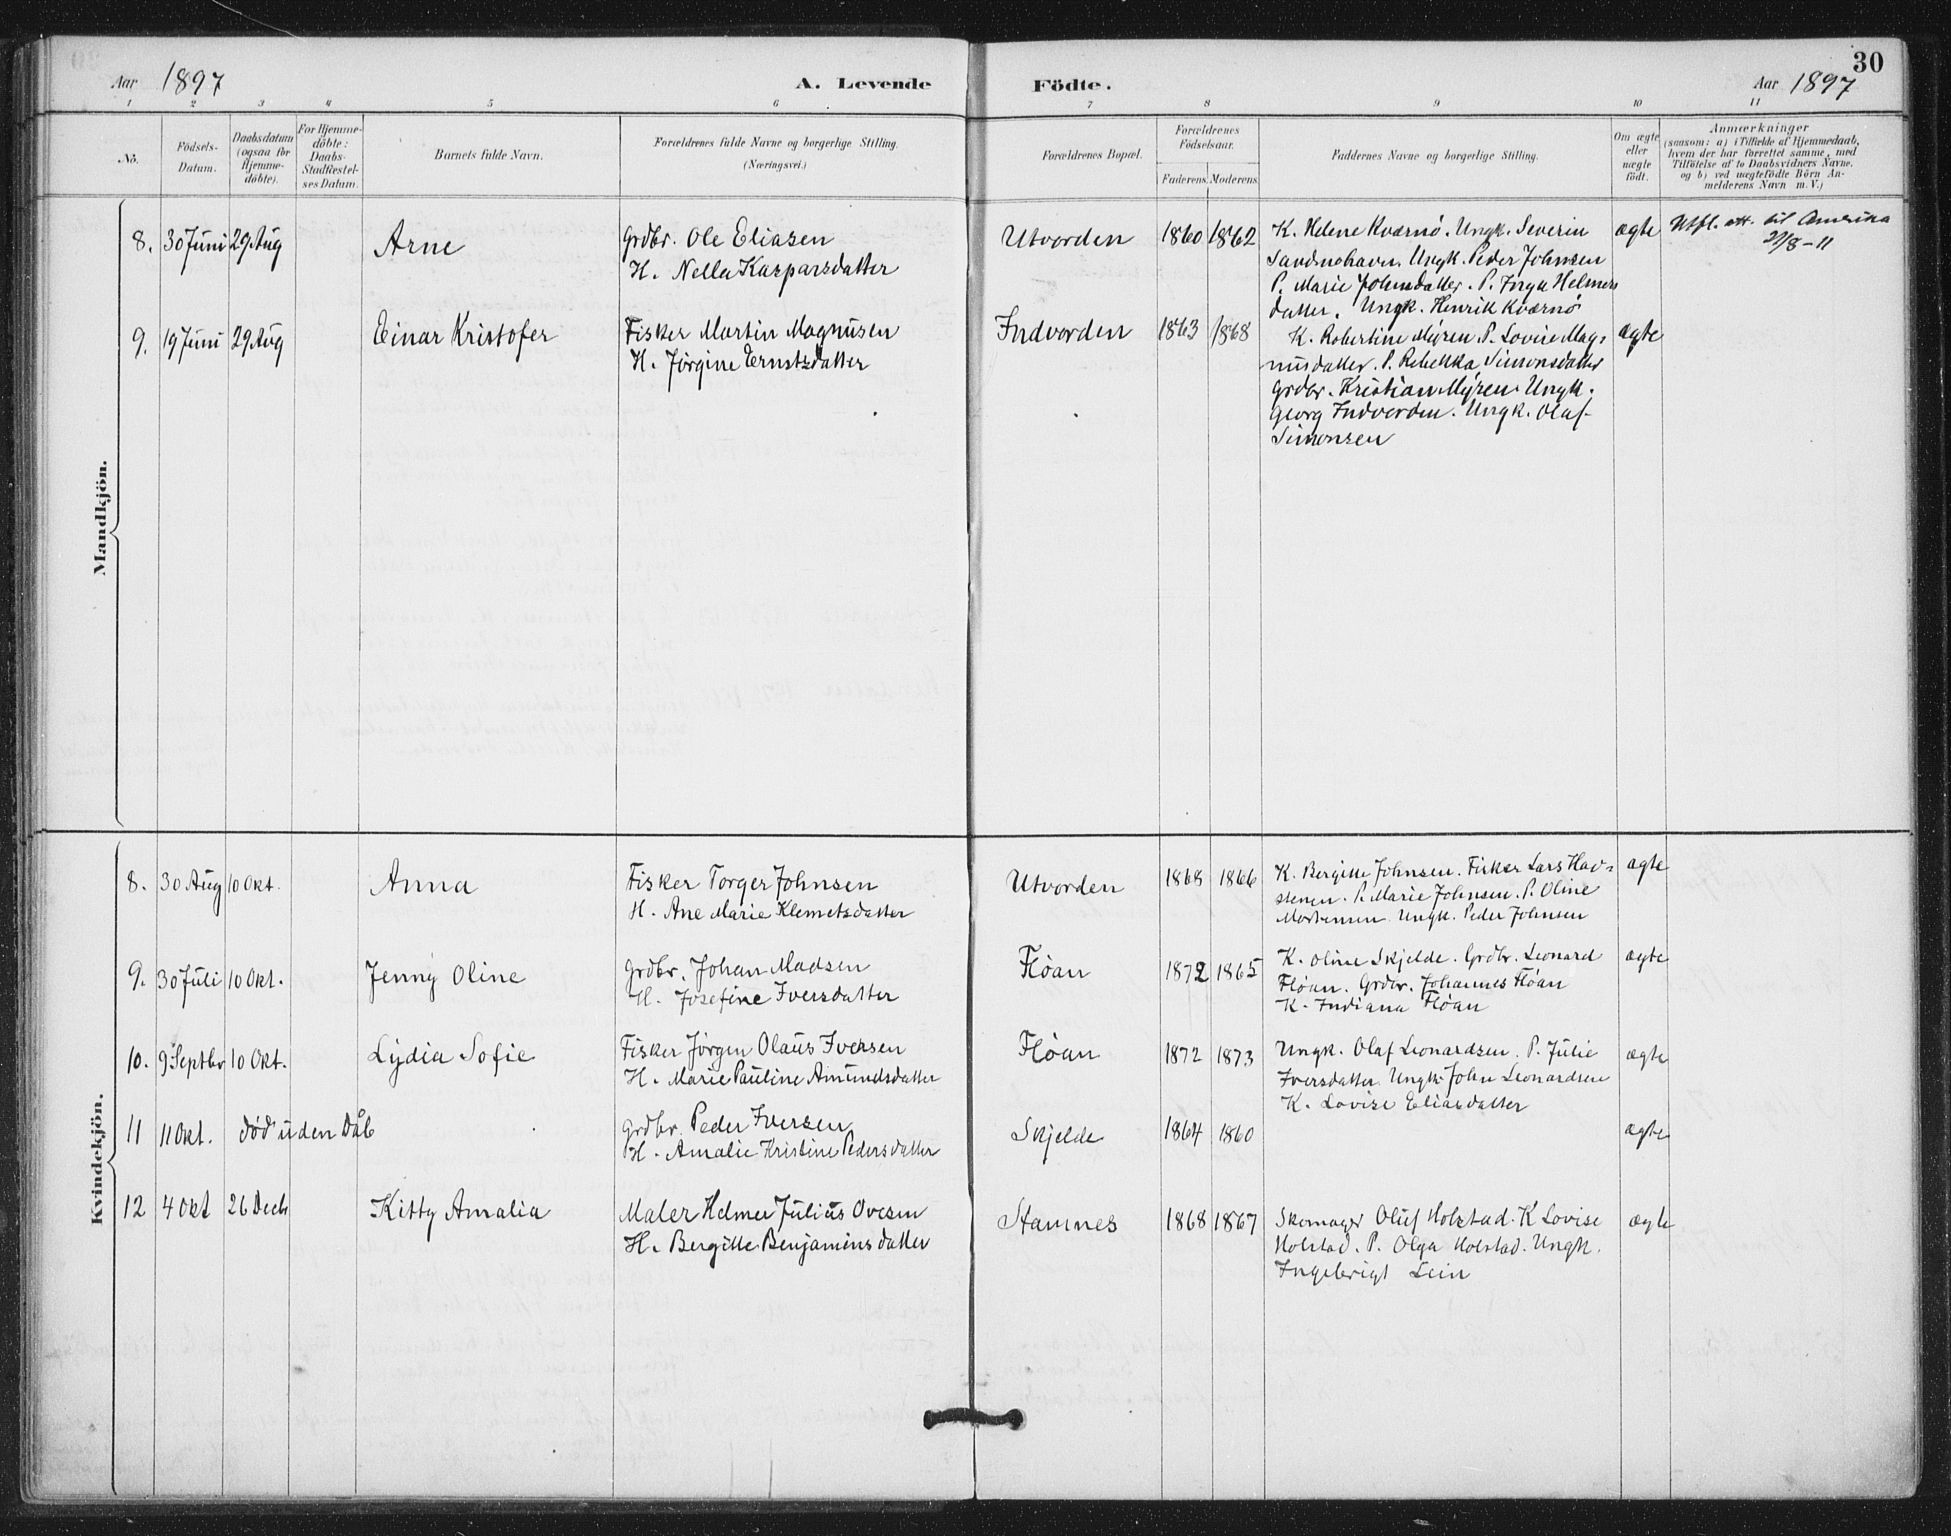 30
Aar 1897 A. Levende Födte. Aar 1897
1 2 3 4 5 6 7 8 9 10 11
Nö.
Födsels-
Datum.
Daabsdatum
(ogsaa for
Hjemme-
döbte).
For Hjemme-
döbte:
Daabs-
Stadfæstel-
ses Datum.
Barnets fulde Navn.
Forældrenes fulde Navne og borgerlige Stilling.
(Næringsvei.)
Forældrenes Bopæl.
Forældrenes
Födselsaar.
Faderens. Moderens.
Faddernes Navne og borgerlige Stilling.
Om ægte
eller
uægte
födt.
Anmærkninger
(saasom: a) i Tilfælde af Hjemmedaab,
hvem der har forrettet samme, med
Tilföielse af to Daabsvidners Navne,
og b) ved uægtefödte Börn An-
melderens Navn m. V.)
Mandkjön.
8. 30 Juni 29 Aug Arne
Grdbr. Ole Eliasen
H. Nella Kasparsdatter
Utvorden 1860 1862
K. Helene Kværnø. Ungk. Severin
Sandnahavn. Ungk. Peder Johnsen
P. Marie Johnsdatter. P. Inga Helmers
datter. Ungk. Henrik Kværnø
ægte
Utfl. att. til Amerika
/8-11
9. 19 Juni 29 Aug Einar Kristofer
Fisker Martin Magnusen
H. Jørgine Ernstsdatter
Indvorden 1863 1868
K. Robertine Myren. P. Lovise Mag-
nusdatter. P. Rebekka Simonsdatter
Grdbr. Kristian Myren. Ungk.
Georg Indvorden. Ungk. Olaf
Simonsen
ægte
Kvindekjön.
8. 30 Aug 10 Okt. Anna
Fisker Torger Johnsen
H. Ane Marie Klemetsdatter
Utvorden 1868 1866
K. Bergitte Johnsen. Fisker Lars Hav-
stenen. P. Marie Johnsen. P. Oline
Mortensen. Ungk. Peder Johnsen
ægte
9. 30 Juli 10 Okt. Jenny Oline
Grdbr. Johan Madsen
H. Josefine Iversdatter
Fløan 1872 1865
K. Oline Skjelde. Grdbr. Leonard
Fløan. Grdbr. Johannes Fløan
K. Indiana Fløan
ægte
10. 9 Septbr 10 Okt. Lydia Sofie
Fisker Jørgen Olaus Iversen
H. Marie Pauline Amundsdatter
Fløan 1872 1873
Ungk. Olaf Leonardsen. P. Julie
Iversdatter. Ungk. John Leonardsen
K. Lovise Eliasdatter
ægte
11 11 Okt. død uden Dåb
Grdbr. Peder Iversen
H. Amalie Kristine Pedersdatter
Skjelde 1864 1860
ægte
12 4 Okt 26 Decb Kitty Amalia
Maler Helmer Julius Ovesen
H. Bergitte Benjaminsdatter
Stamnes 1868 1867
Skomager Oluf Holstad. K Lovise
Holstad. P. Olga Holstad. Ungk.
Ingebrigt Lein
ægte